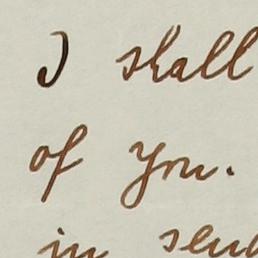 I shall
of you.
in